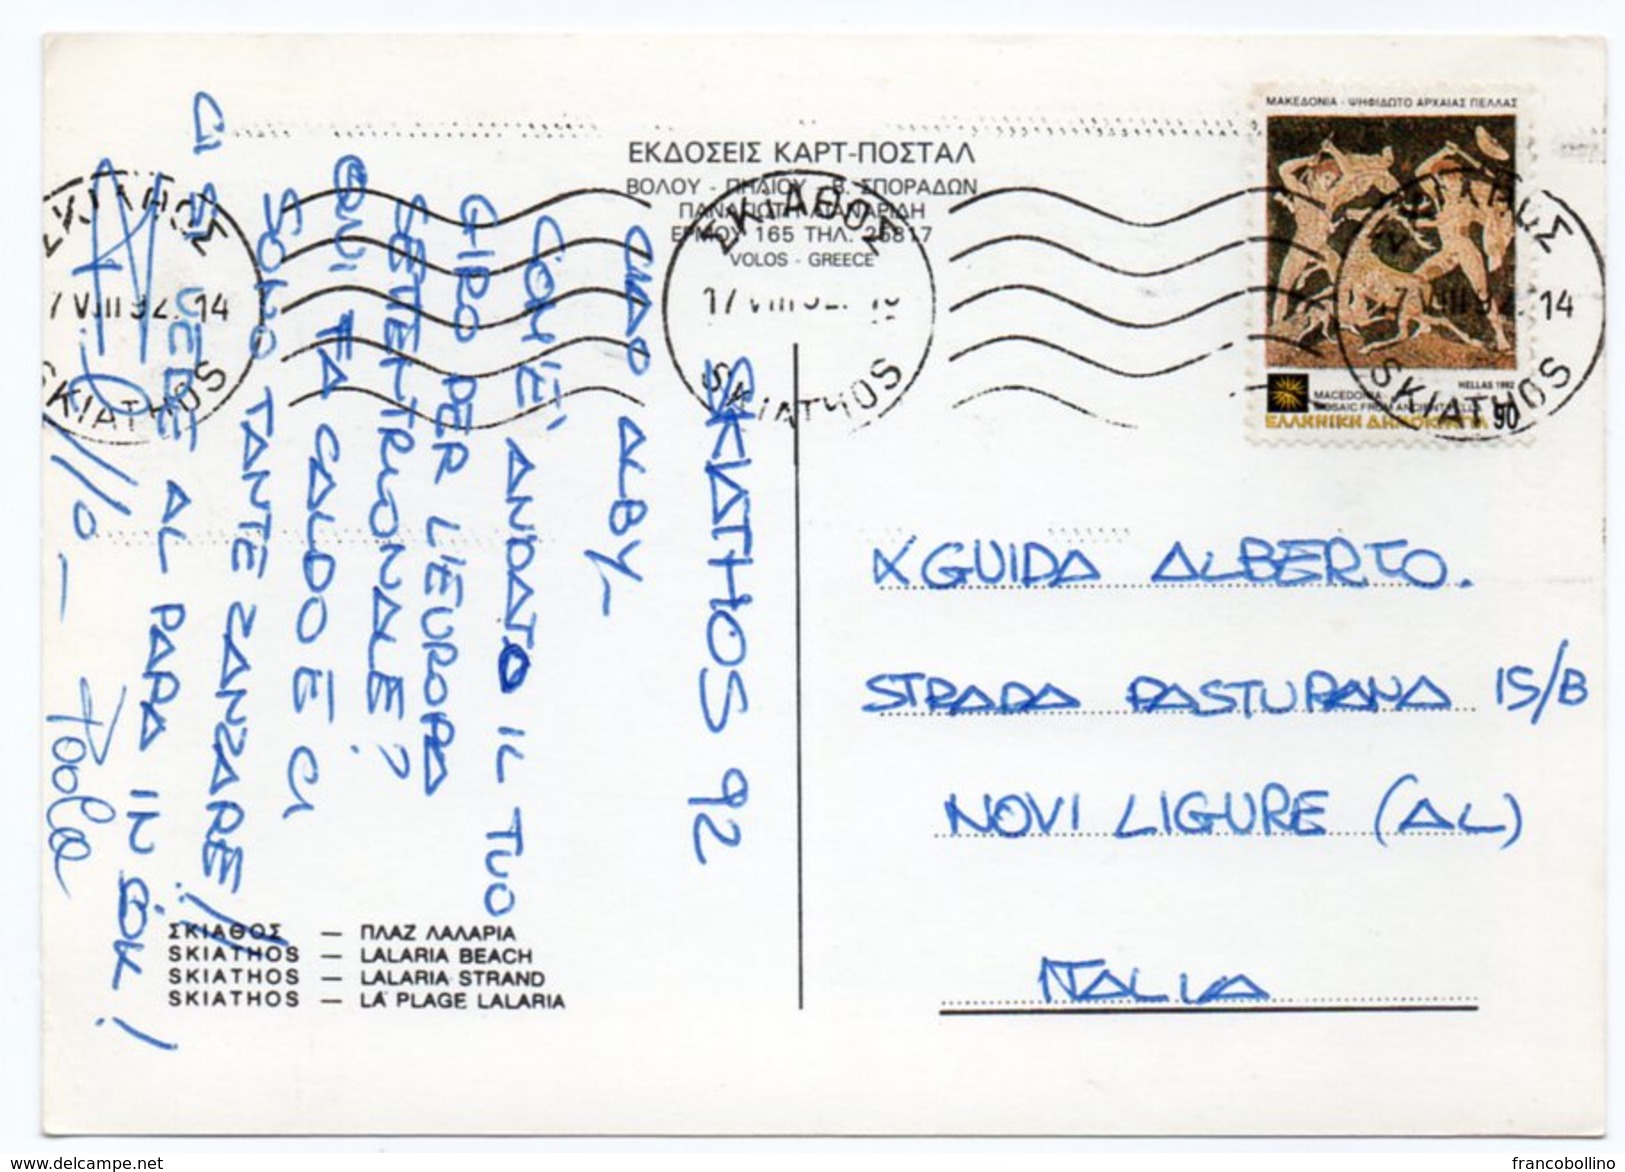 ΕΚΔΟΣΕΙΣ ΚΑΡΤ-ΠΟΣΤΑΛ
ΒΟΛΟΥ - ΠΗΛΙΟΥ - Β. ΣΠΟΡΑΔΩΝ
ΠΑΝΑΓΙΩΤΗ
ΕΡΜΟΥ 165 ΤΗΛ. 25817
VOLOS - GREECE
ΜΑΚΕΔΟΝΙΑ - ΨΗΦΙΔΩΤΟ ΑΡΧΑΙΑΣ ΠΕΛΛΑΣ
HELLAS 1992
MACEDONIA
MOSAIC FROM ANCIENT PELLA
ΕΛΛΗΝΙΚΗ ΔΗΜΟΚΡΑΤΙΑ 90
ΣΚΙΑΘΟΣ
7 VIII 92. 14
SKIATHOS
ΣΚΙΑΘΟΣ
17 VIII 92.
SKIATHOS
ΣΚΙΑΘΟΣ
7 VIII 92. 14
SKIATHOS
SKIATHOS 92
CIAO ALBY
COM'È ANDATO IL TUO
GIRO PER L'EUROPA
SETTENTRIONALE?
QUI FA CALDO E CI
SONO TANTE ZANZARE!!
CI SI VEDE AL PARA IN
Paola
X GUIDA ALBERTO.
STRADA PASTURANA 15/B
NOVI LIGURE (AL)
ITALIA
ΣΚΙΑΘΟΣ — ΠΛΑΖ ΛΑΛΑΡΙΑ
SKIATHOS — LALARIA BEACH
SKIATHOS — LALARIA STRAND
SKIATHOS — LA PLAGE LALARIA
delcampe.net
francobollino